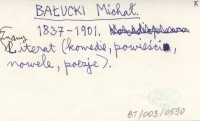 BAŁUCKI Michał.
1837-1901.
Znany
Literat (komedie, powieści,
nowele, poezje).
BT/003/0590
K